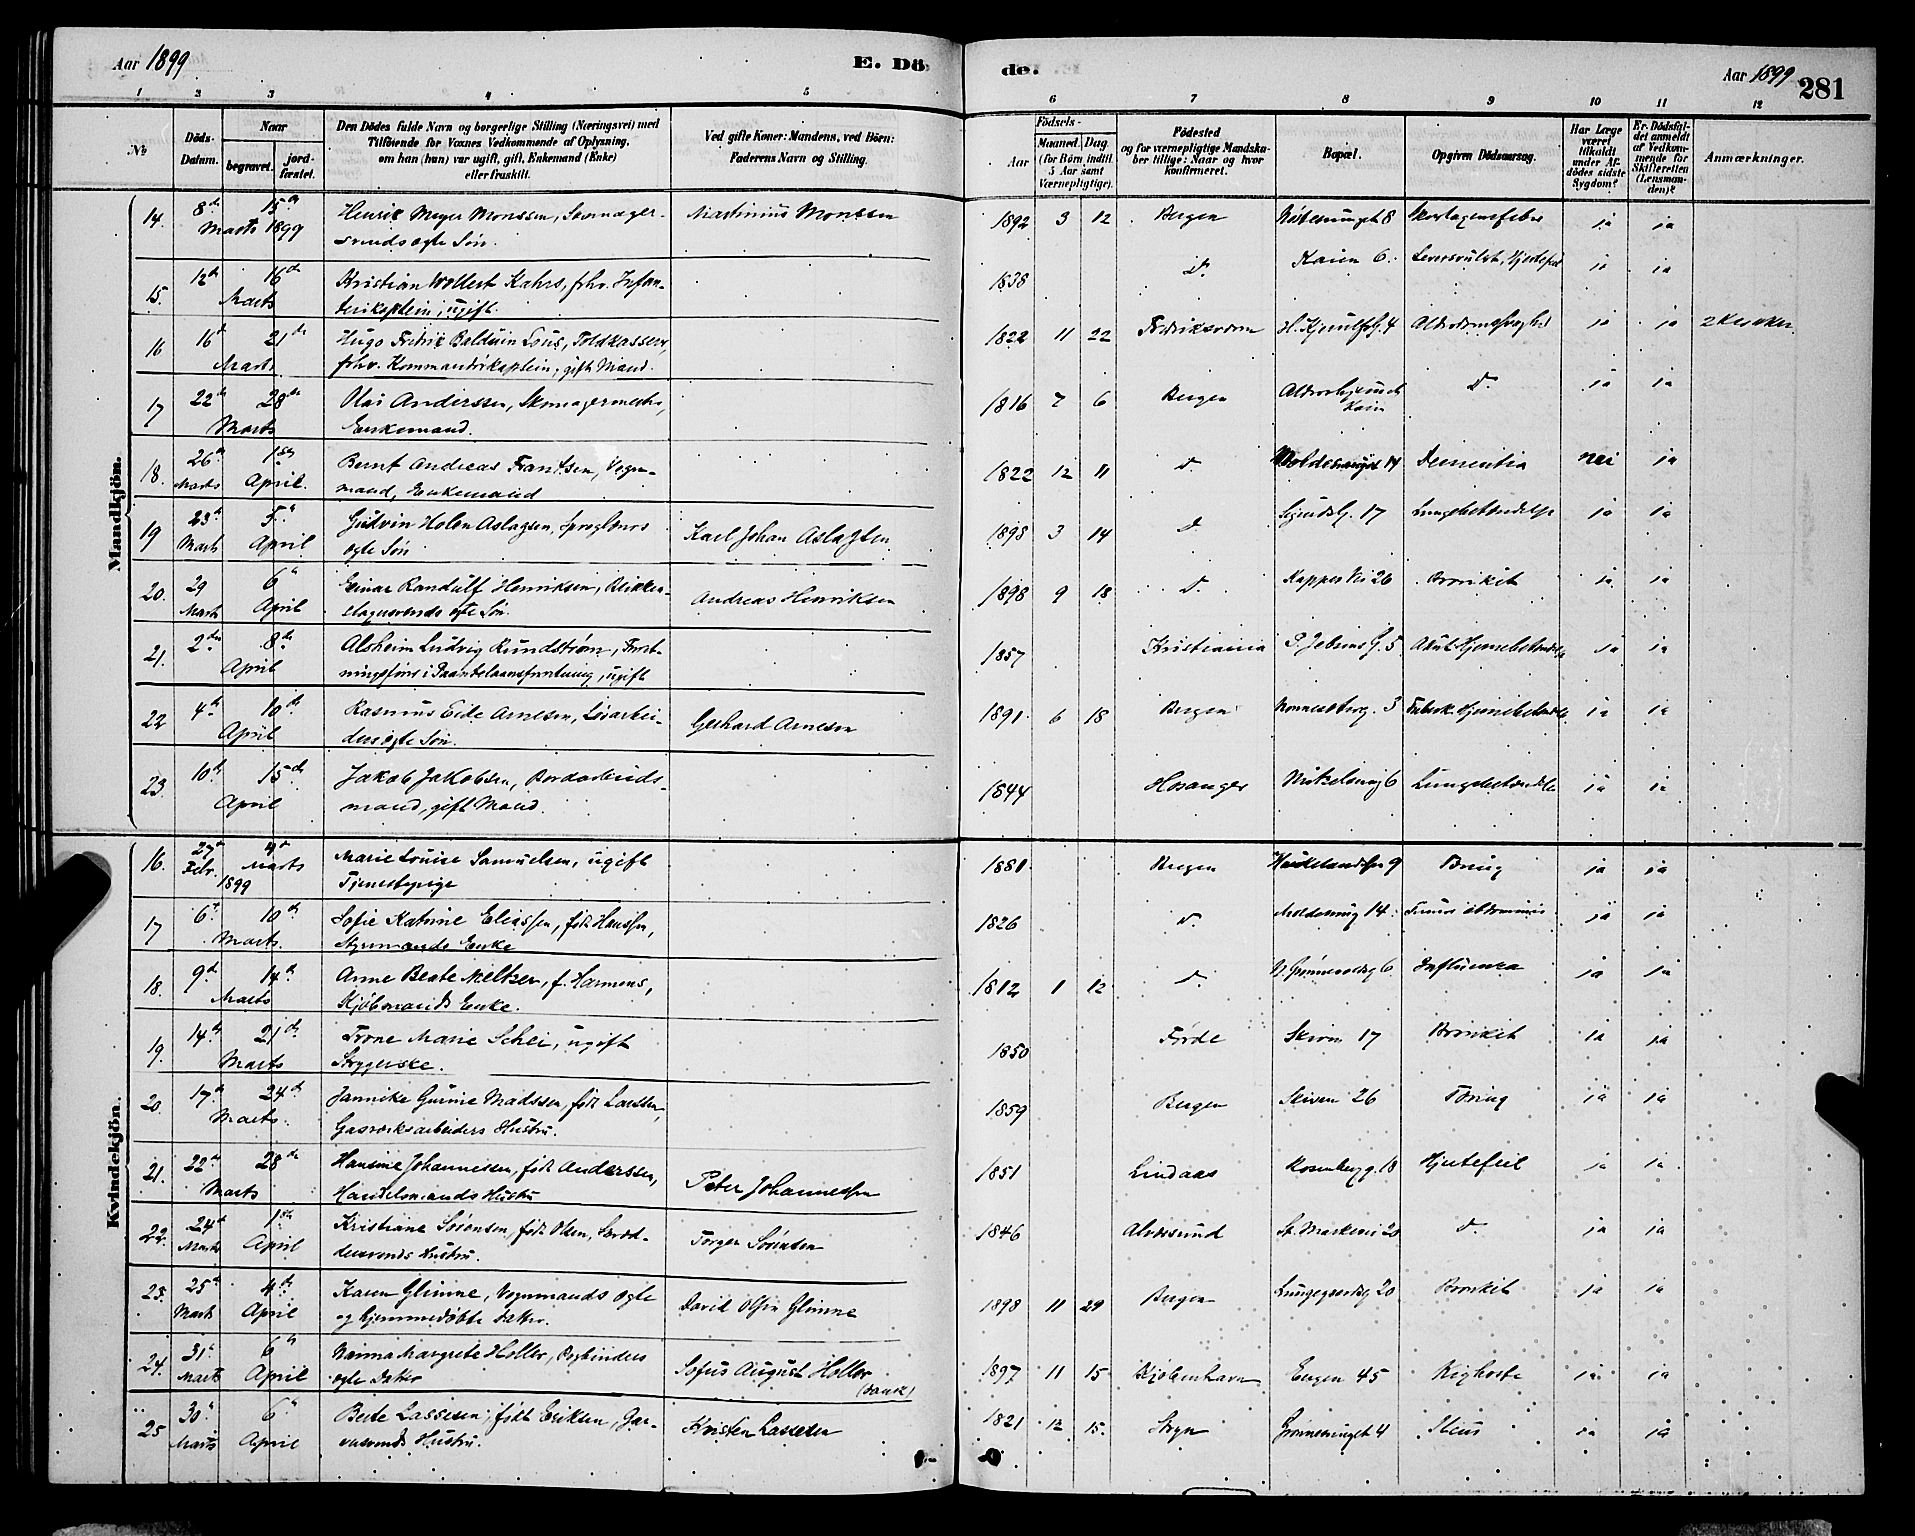 Aar 1899
E. Dö-
de.
Aar 1899
281
1 2 3 4 5 6 7 8 9 10 11 12
No
Döds-
Datum.
Naar
begravet.
jord-
fæstet.
Den Dödes fulde Navn og borgerlige Stilling (Næringsvei) med
Tilföiende for Voxnes Vedkommende af Oplysning,
om han (hun) var ugift, gift, Enkemand (Enke)
eller fraskilt.
Ved gifte Koner: Mandens, ved Börn:
Faderens Navn og Stilling.
Födsels-
Aar
Maaned. Dag.
(for Börn indtil
5 Aar samt
Værnepligtige).
Födested
og for værnepligtige Mandska-
ber tillige: Naar og hvor
konfirmeret.
Bopæl.
Opgiven Dödsaarsag.
Har Læge
været
tilkaldt
under Af-
dödes sidste
Sygdom?
Er Dödsfal-
det anmeldt
af Vedkom-
mende for
Skifteretten
(Lensman-
den)?
Anmærkninger.
Mandkjön.
14. 8de 15de Henrik Meyer Monssen, Skomager- Martinius Monssen 1892 3 12 Bergen 8 Skarlagensfeber ja ja
Marts 1899 svends ægte Søn.
15. 12te 16de Kristian Wollert Kahrs, fhv. Infan- 1838 Do. Kaien 6. ja ja
Marts terikaptein, ugift.
16 16de 21de Hugo Fredrik Balduin Lous, Toldkasserer, 1822 11 22 Fredriksværn 4 Alderdomssvaghed ja ja
Marts fhv. Kommandørkaptein, gift Mand.
17 22de 28de Olai Anderssen, Skomagermester, 1816 7 6 Bergen Do. ja ja
Marts Enkemand.
18. 26de 1ste Bernt Andreas Frantsen, Vogn- 1822 12 11 Do. 14 Dementia nei ja
Marts April. mand, Enkemand
19 23de 5te Gudvin Holen Aslagsen, ægte Søn Karl Johan Aslagsen 1898 3 14 Do. 17 Lungebetændelse ja ja
Marts April
20. 29 6te Einar Randulf Henriksen, Blikken- Andreas Henriksen 1898 9 18 Do. 26 Bronkit ja ja
Marts April slagersvends ægte Søn.
21. 2den 8de Alsheim Ludvig Rundstrøm, 1857 Kristiania 5 Akut Hjernebetændelse ja ja
April ugift
22 4de 10de Rasmus Eide Arnesen, Løsarbei- Gerhard Arnesen 1891 6 18 Bergen 3 Tuberk. Hjernebetændelse ja ja
April ders ægte Søn.
23. 10de 15de Jakob Jakobsen, 1844 Hosanger 6 Lungebetændelse ja ja
April mand, gift Mand.
Kvindekjön.
16. 27de 4de Marie Louise Samuelsen, ugift 1881 Bergen 9 ja ja
Febr. Marts 1899 Tjenestepige
17 6te 10de Sofie Katrine Eliassen, født Hanssen, 1826 Do. 14 ja ja
Marts. Styrmands Enke
18. 9de 14de Anne Beate Meltzer, f. Harmens, 1812 1 12 Do. 6 Influenza ja ja
Marts Kjøbmands Enke.
19. 14de 21de Trone Marie Schei, ugift 1850 Førde Skiven 17 Bronkit ja ja
Marts Strygerske.
20. 17de 24de Jannike Gurine Madssen, født Larssen, 1859 Bergen Skiven 26 Tæring ja ja
Marts. Gasværksarbeiders Hustru.
21. 22de 28de Hansine Johannessen, født Anderssen, Peter Johannessen 1851 Lindaas Rosenbergg. 18 Hjertefeil ja ja
Marts Handelsmands Hustru
22. 24de 1ste Kristiane Sørensen, født Olsen, Skræd- Torger Sørensen 1846 Alversund St. Markevei 20 Do. ja ja
Marts April dersvends Hustru.
23. 25de 4de Karen Glimme, Vognmands ægte David Olsen Glimme 1898 11 29 Bergen Lungegaardsg. 20 Bronkit ja ja
Marts April og hjemmedøbte Datter.
24. 31te 6te Nanna Margrete Holler, Bogbinders Sofus August Holler 1897 11 15 Kjøbenhavn Engen 45 Kighoste ja ja
Marts April ægte Datter (Dansk)
25 30te 6te Berte Lassesen, født Eriksen, Gar- Kristen Lassesen 1821 12 15 Stryn 4 Ileus ja ja
Marts April versvends Hustru.